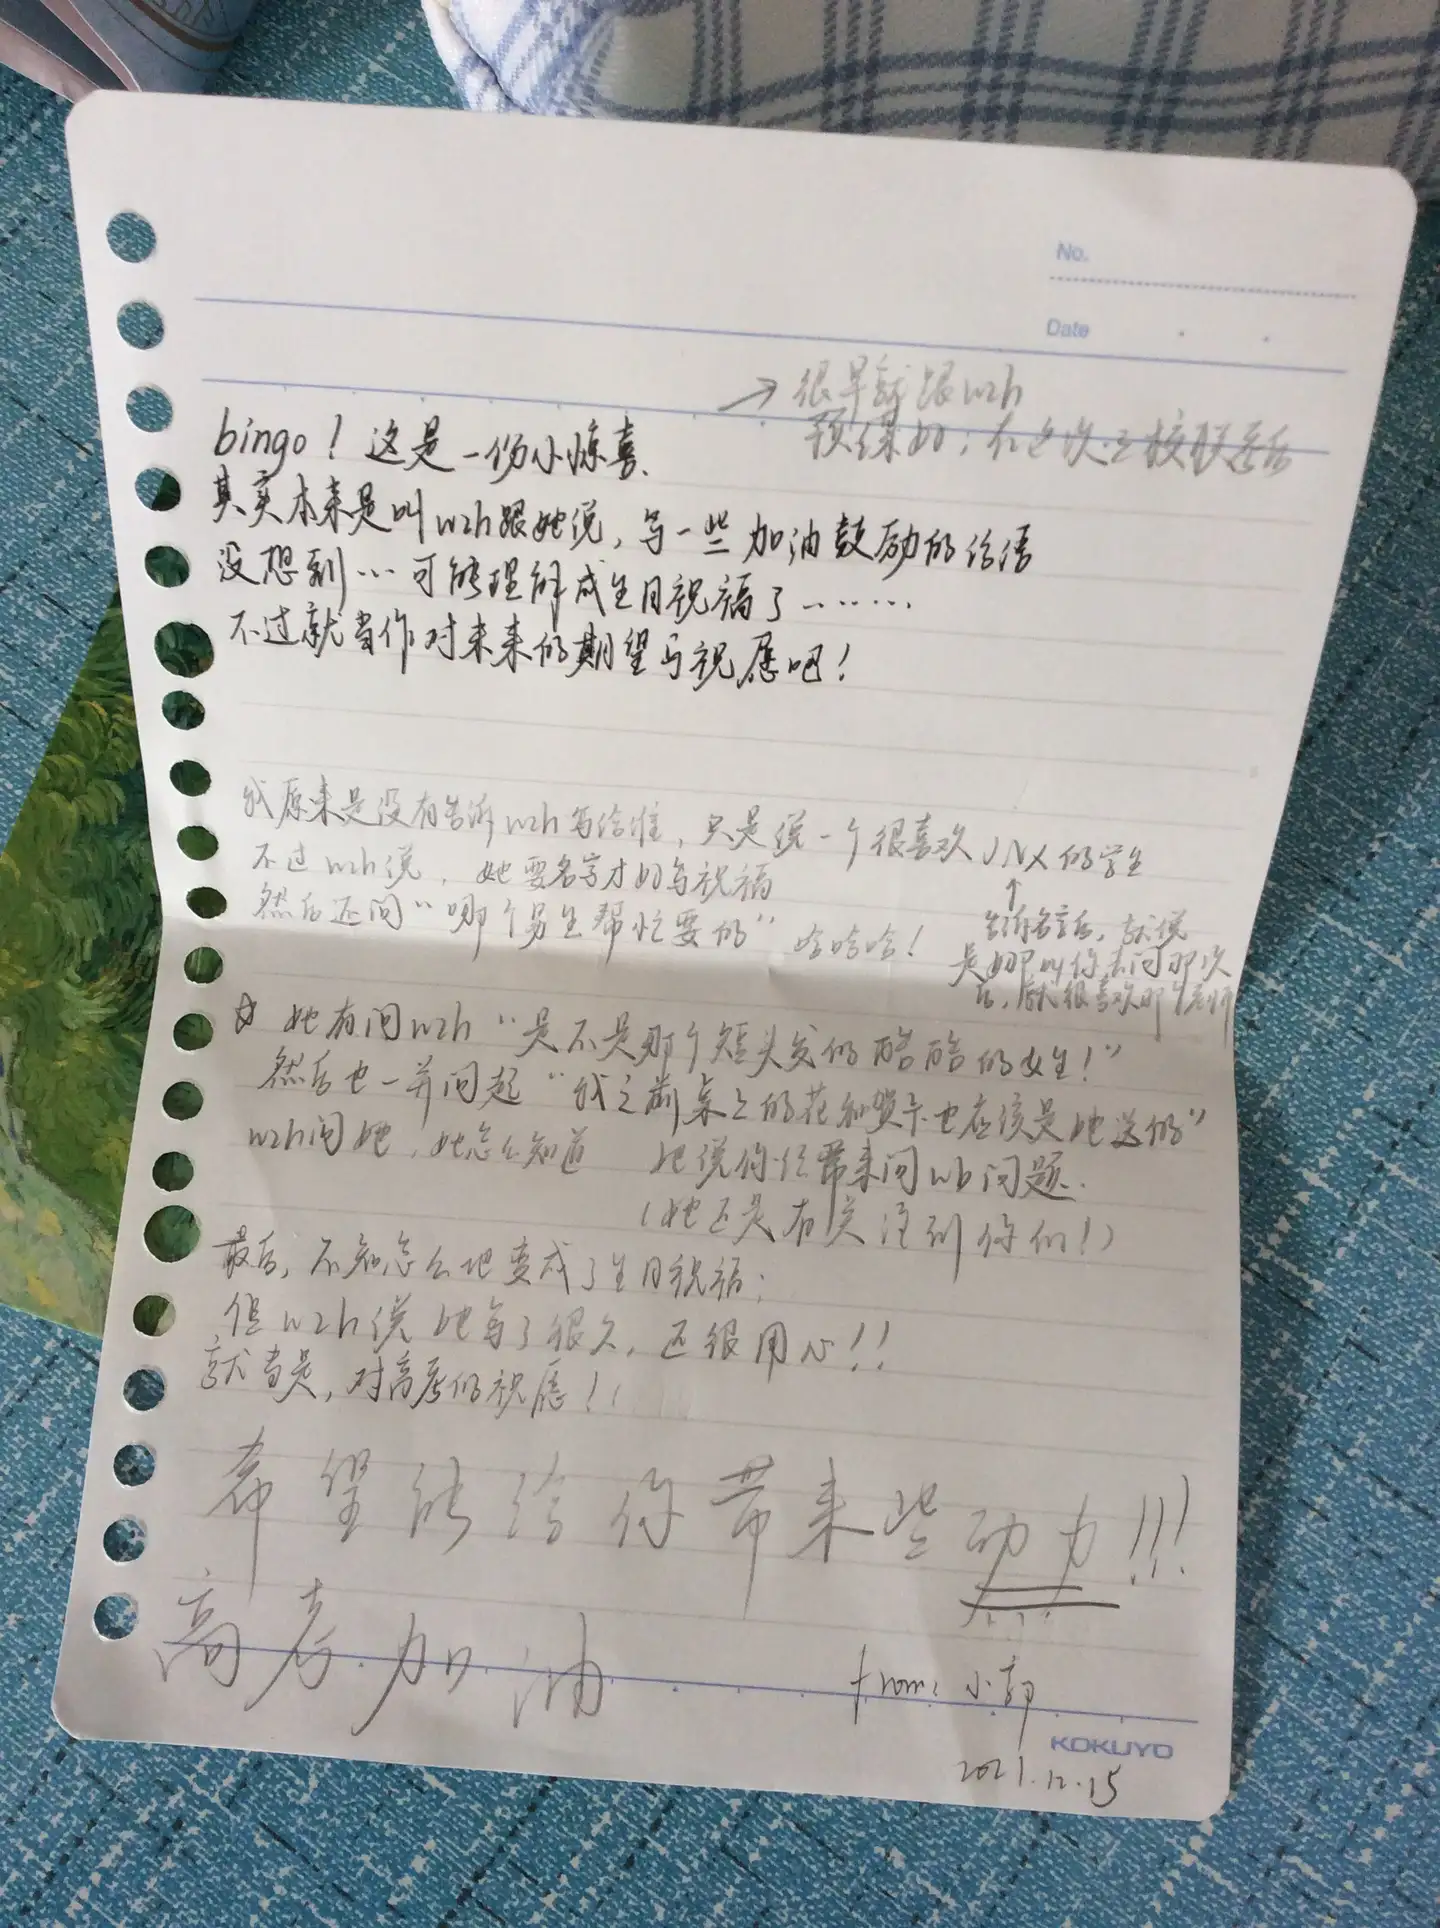 No.
Date
→ 很早就跟wzh
预谋的；在这次三校联考后
bingo！这是一份小惊喜、
其实本来是叫wzh跟她说，写一些加油鼓励的话语
没想到…可能理解成生日祝福了………
不过就当作对未来的期望与祝愿吧！
我原来是没有告诉wzh写给谁，只是说一个很喜欢JNX的学生
不过wzh说，她要名字才好写祝福
然后还问“哪个男生帮忙要的”哈哈哈！
↑
告诉名字后，就说
是她叫你去问那次
后，就很喜欢那个老师
☆ 她有问wzh“是不是那个短头发的酷酷的女生！”
然后也一并问起“我之前桌上的花和贺卡也应该是她送的”
wzh问她，她怎么知道 她说你经常来问wb问题.
（她还是有关注到你们！）
最后，不知怎么地变成了生日祝福；
但wzh说她写了很久，还很用心！！
就当是，对高考的祝愿！！
希望能给你带来些动力！！！
高考加油
from：小郭
KOKUYO
2021.12.15